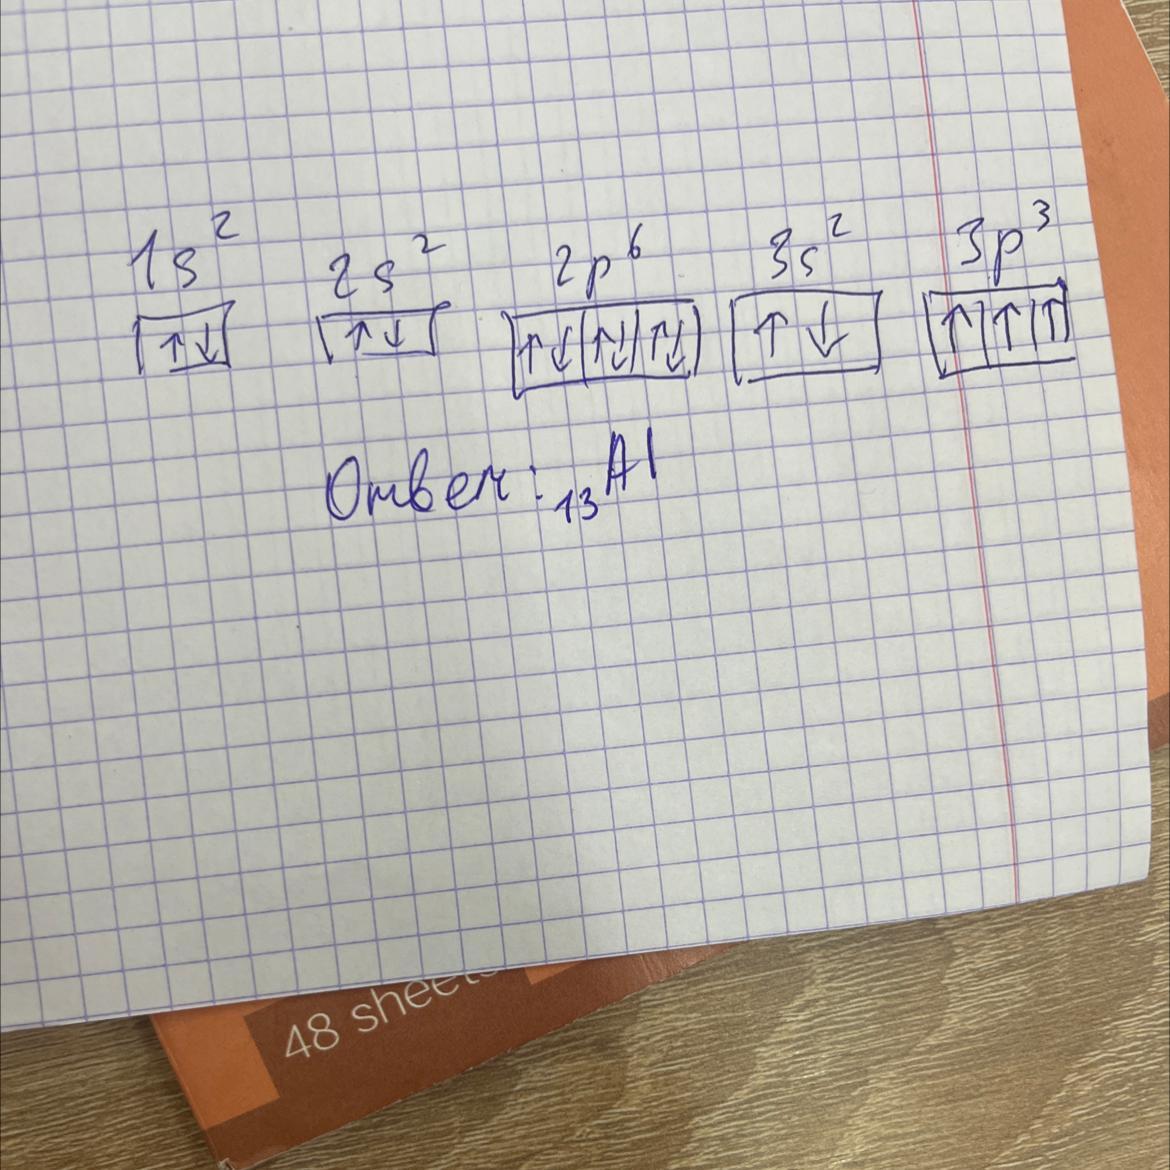 1s² 2s² 2p⁶ 3s² 3p³
↑↓ ↑↓ ↑↓ ↑↓ ↑↓ ↑↓ ↑ ↑ ↑
Ответ: ₁₃Al
48 sheets